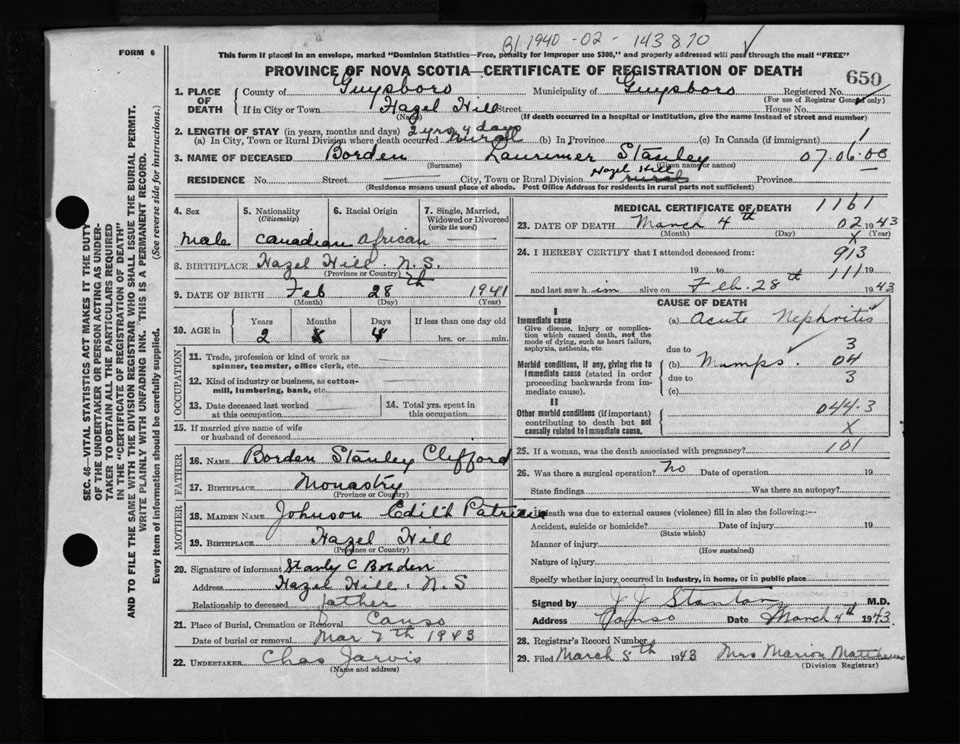 B1.1940-02-143870
FORM 6
This form if placed in an envelope, marked "Dominion Statistics—Free, penalty for improper use $300," and properly addressed will pass through the mail "FREE"
PROVINCE OF NOVA SCOTIA—CERTIFICATE OF REGISTRATION OF DEATH
650
1. PLACE OF DEATH
County of Guysboro Municipality of Guysboro Registered No.
(For use of Registrar General only)
If in City or Town Hazel Hill Street House No.
(Name) (If death occurred in a hospital or institution, give the name instead of street and number)
2. LENGTH OF STAY (in years, months and days) 2 yrs 4 days
(a) In City, Town or Rural Division where death occurred rural (b) In Province (c) In Canada (if immigrant) 1
3. NAME OF DECEASED Borden Laurimer Stanley 07.06.08
(Surname) (Given name or names)
Hazel Hill
RESIDENCE No. Street City, Town or Rural Division rural Province
(Residence means usual place of abode. Post Office Address for residents in rural parts not sufficient)
4. Sex
Male
5. Nationality
(Citizenship)
Canadian
6. Racial Origin
African
7. Single, Married, Widowed or Divorced
(write the word)
8. BIRTHPLACE Hazel Hill. N.S.
(Province or Country)
9. DATE OF BIRTH Feb 28th 1941
(Month) (Day) (Year)
10. AGE in
Years Months Days If less than one day old
2 x 4 hrs. or min.
OCCUPATION
11. Trade, profession or kind of work as
spinner, teamster, office clerk, etc.
12. Kind of industry or business, as cotton-
mill, lumbering, bank, etc.
13. Date deceased last worked
at this occupation
14. Total yrs. spent in
this occupation
15. If married give name of wife
or husband of deceased
FATHER
16. NAME Borden Stanley Clifford
17. BIRTHPLACE Monastry
(Province or Country)
MOTHER
18. MAIDEN NAME Johnson Edith Patricia
19. BIRTHPLACE Hazel Hill
(Province or Country)
20. Signature of informant Stanly C Borden
Address Hazel Hill. N.S
Relationship to deceased father
21. Place of Burial, Cremation or Removal Canso
Date of burial or removal Mar 7th 1943
22. UNDERTAKER Chas Jarvis
(Name and address)
MEDICAL CERTIFICATE OF DEATH 1161
23. DATE OF DEATH March 4th 02 1943
(Month) (Day) (Year)
x
24. I HEREBY CERTIFY that I attended deceased from: 913
19 to 111 19
and last saw him alive on Feb. 28th 1943
CAUSE OF DEATH
I
Immediate cause
Give disease, injury or complica-
tion which caused death, not the
mode of dying, such as heart failure,
asphyxia, asthenia, etc.
(a) Acute Nephritis
due to 3
Morbid conditions, if any, giving rise to
immediate cause (stated in order
proceeding backwards from im-
mediate cause).
(b) Mumps. 04
due to 3
(c)
II
Other morbid conditions (if important)
contributing to death but not
causally related to immediate cause.
044.3
x
25. If a woman, was the death associated with pregnancy? 101
26. Was there a surgical operation? No Date of operation 19
State findings Was there an autopsy?
27. If death was due to external causes (violence) fill in also the following:—
Accident, suicide or homicide? Date of injury 19
(State which)
Manner of injury
(How sustained)
Nature of injury
Specify whether injury occurred in industry, in home, or in public place
Signed by J J Stanton M.D.
Address Canso Date March 4th 1943.
28. Registrar's Record Number
29. Filed March 5th 1943 Mrs Marion Matthews
(Division Registrar)
SEC. 46—VITAL STATISTICS ACT MAKES IT THE DUTY
OF THE UNDERTAKER OR PERSON ACTING AS UNDER-
TAKER TO OBTAIN ALL THE PARTICULARS REQUIRED
IN THE "CERTIFICATE OF REGISTRATION OF DEATH"
AND TO FILE THE SAME WITH THE DIVISION REGISTRAR WHO SHALL ISSUE THE BURIAL PERMIT.
WRITE PLAINLY WITH UNFADING INK. THIS IS A PERMANENT RECORD.
Every item of information should be carefully supplied. (See reverse side for instructions.)